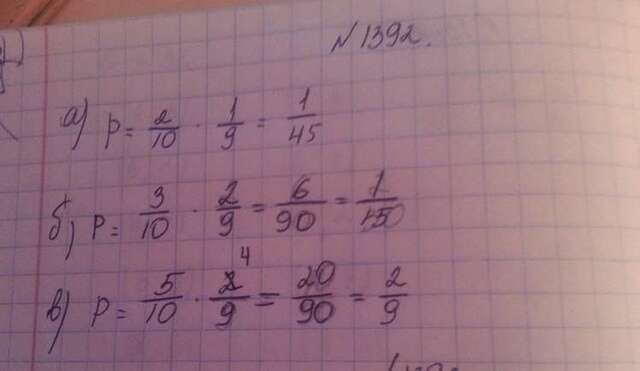 N1392.
а) P = 2/10 · 1/9 = 1/45
б) P = 3/10 · 2/9 = 6/90 = 1/15
в) P = 5/10 · 4/9 = 20/90 = 2/9